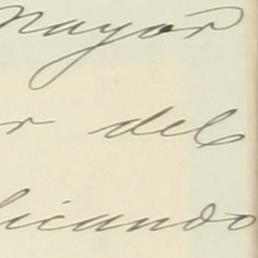 mayor
r del
licando